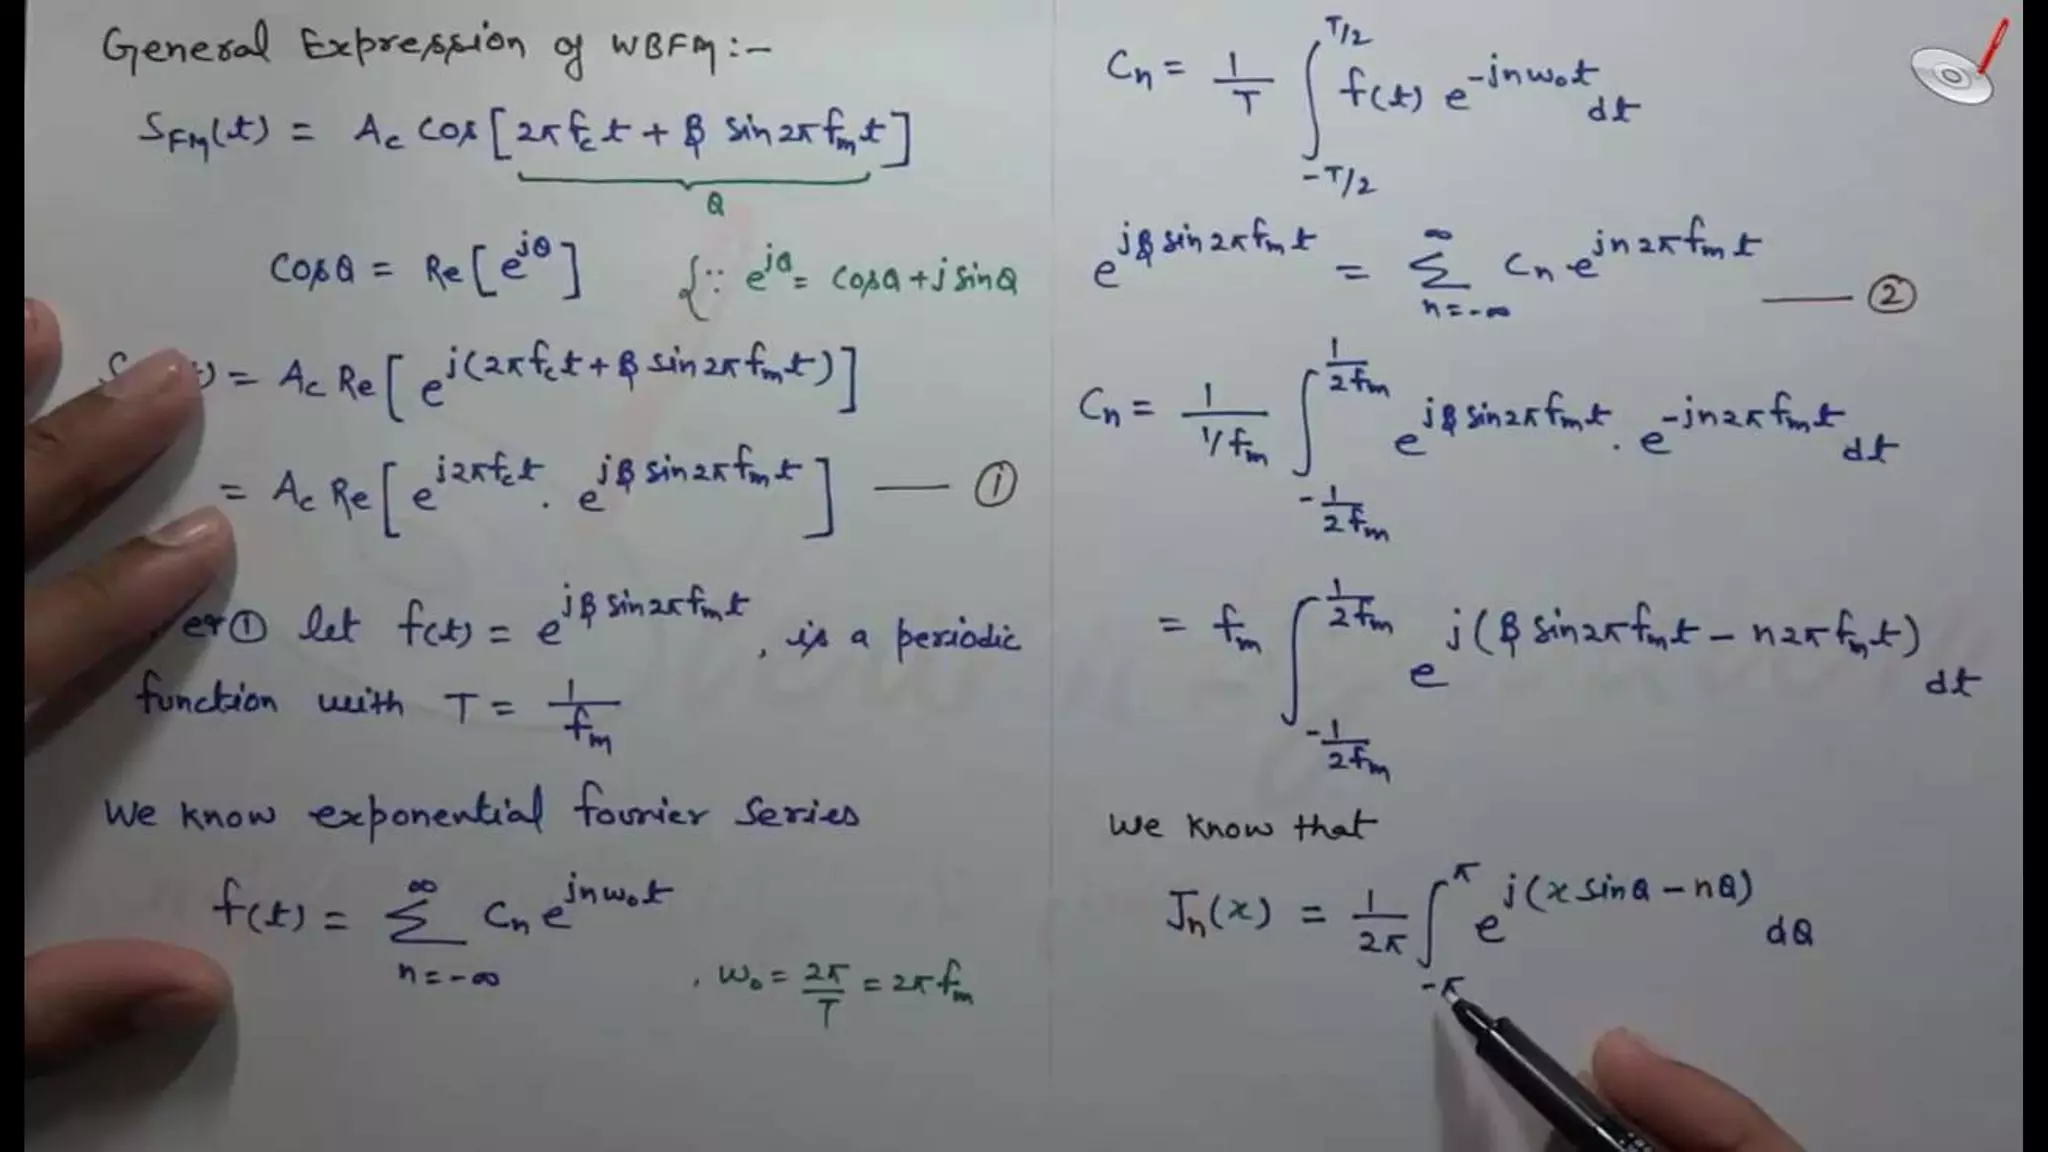 General Expression of WBFM:-
S_FM(t) = A_c cos[2πf_c t + β sin2πf_m t]
θ
cosθ = Re[e^{jθ}] {∵ e^{jθ} = cosθ + j sinθ
S t) = A_c Re[e^{j(2πf_c t + β sin2πf_m t)}]
= A_c Re[e^{j2πf_c t} . e^{jβ sin2πf_m t}] —— ①
① let f(t) = e^{jβ sin2πf_m t}, is a periodic
function with T = 1/f_m
We know exponential fourier series
f(t) = Σ_{n=-∞}^{∞} C_n e^{jnω₀t}
, ω₀ = 2π/T = 2πf_m
C_n = 1/T ∫_{-T/2}^{T/2} f(t) e^{-jnω₀t} dt
e^{jβ sin2πf_m t} = Σ_{n=-∞}^{∞} C_n e^{jn2πf_m t} —— ②
C_n = 1/(1/f_m) ∫_{-1/2f_m}^{1/2f_m} e^{jβ sin2πf_m t} . e^{-jn2πf_m t} dt
= f_m ∫_{-1/2f_m}^{1/2f_m} e^{j(β sin2πf_m t - n2πf_m t)} dt
We know that
J_n(x) = 1/2π ∫_{-π}^{π} e^{j(x sinθ - nθ)} dθ